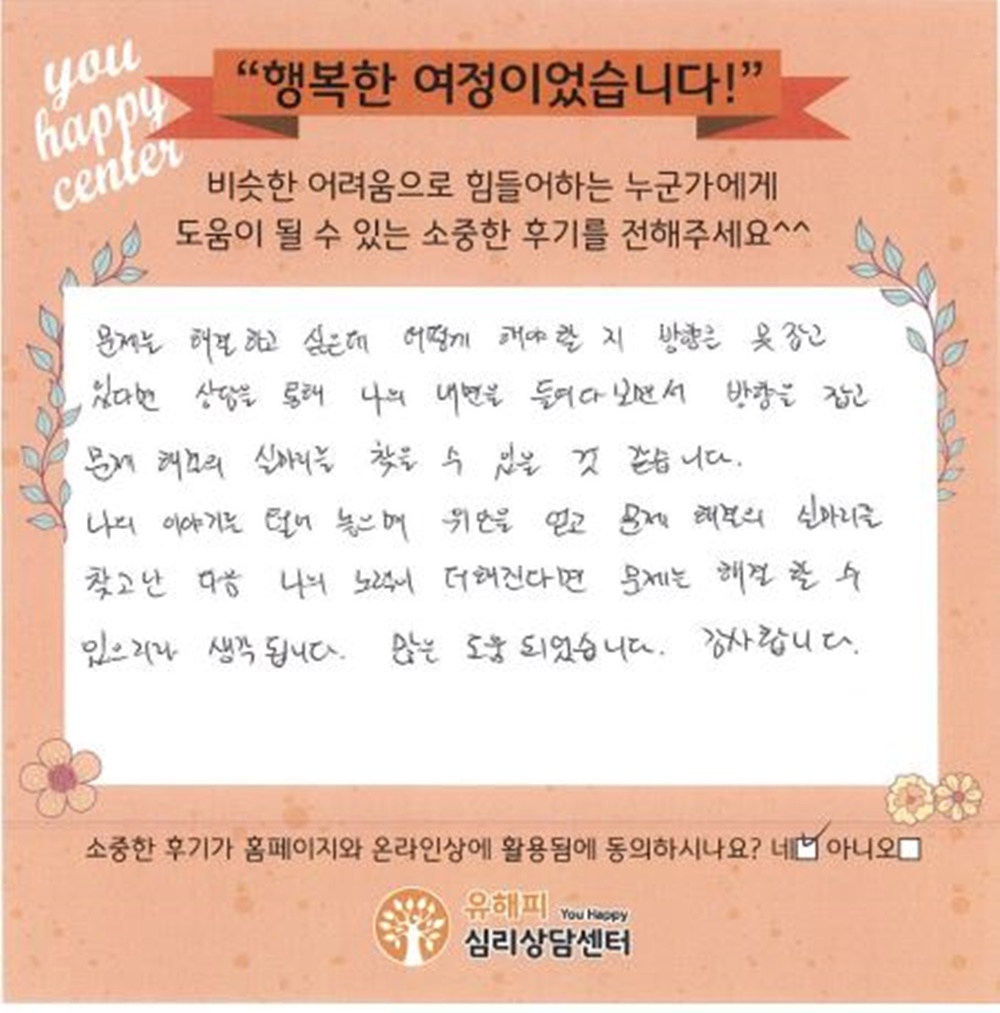 you
happy
center
“행복한 여정이었습니다!”
비슷한 어려움으로 힘들어하는 누군가에게
도움이 될 수 있는 소중한 후기를 전해주세요^^
문제는 해결하고 싶은데 어떻게 해야 할 지 방향은 못 잡고
있다면 상담을 통해 나의 내면을 들여다보면서 방향을 잡고
문제 해결의 실마리를 찾을 수 있을 것 같습니다.
나의 이야기를 털어 놓으며 위안을 얻고 문제 해결의 실마리를
찾고난 다음 나의 노력이 더해진다면 문제는 해결 할 수
있으리라 생각됩니다. 많은 도움 되었습니다. 감사합니다.
소중한 후기가 홈페이지와 온라인상에 활용됨에 동의하시나요? 네 아니오
유해피 You Happy
심리상담센터